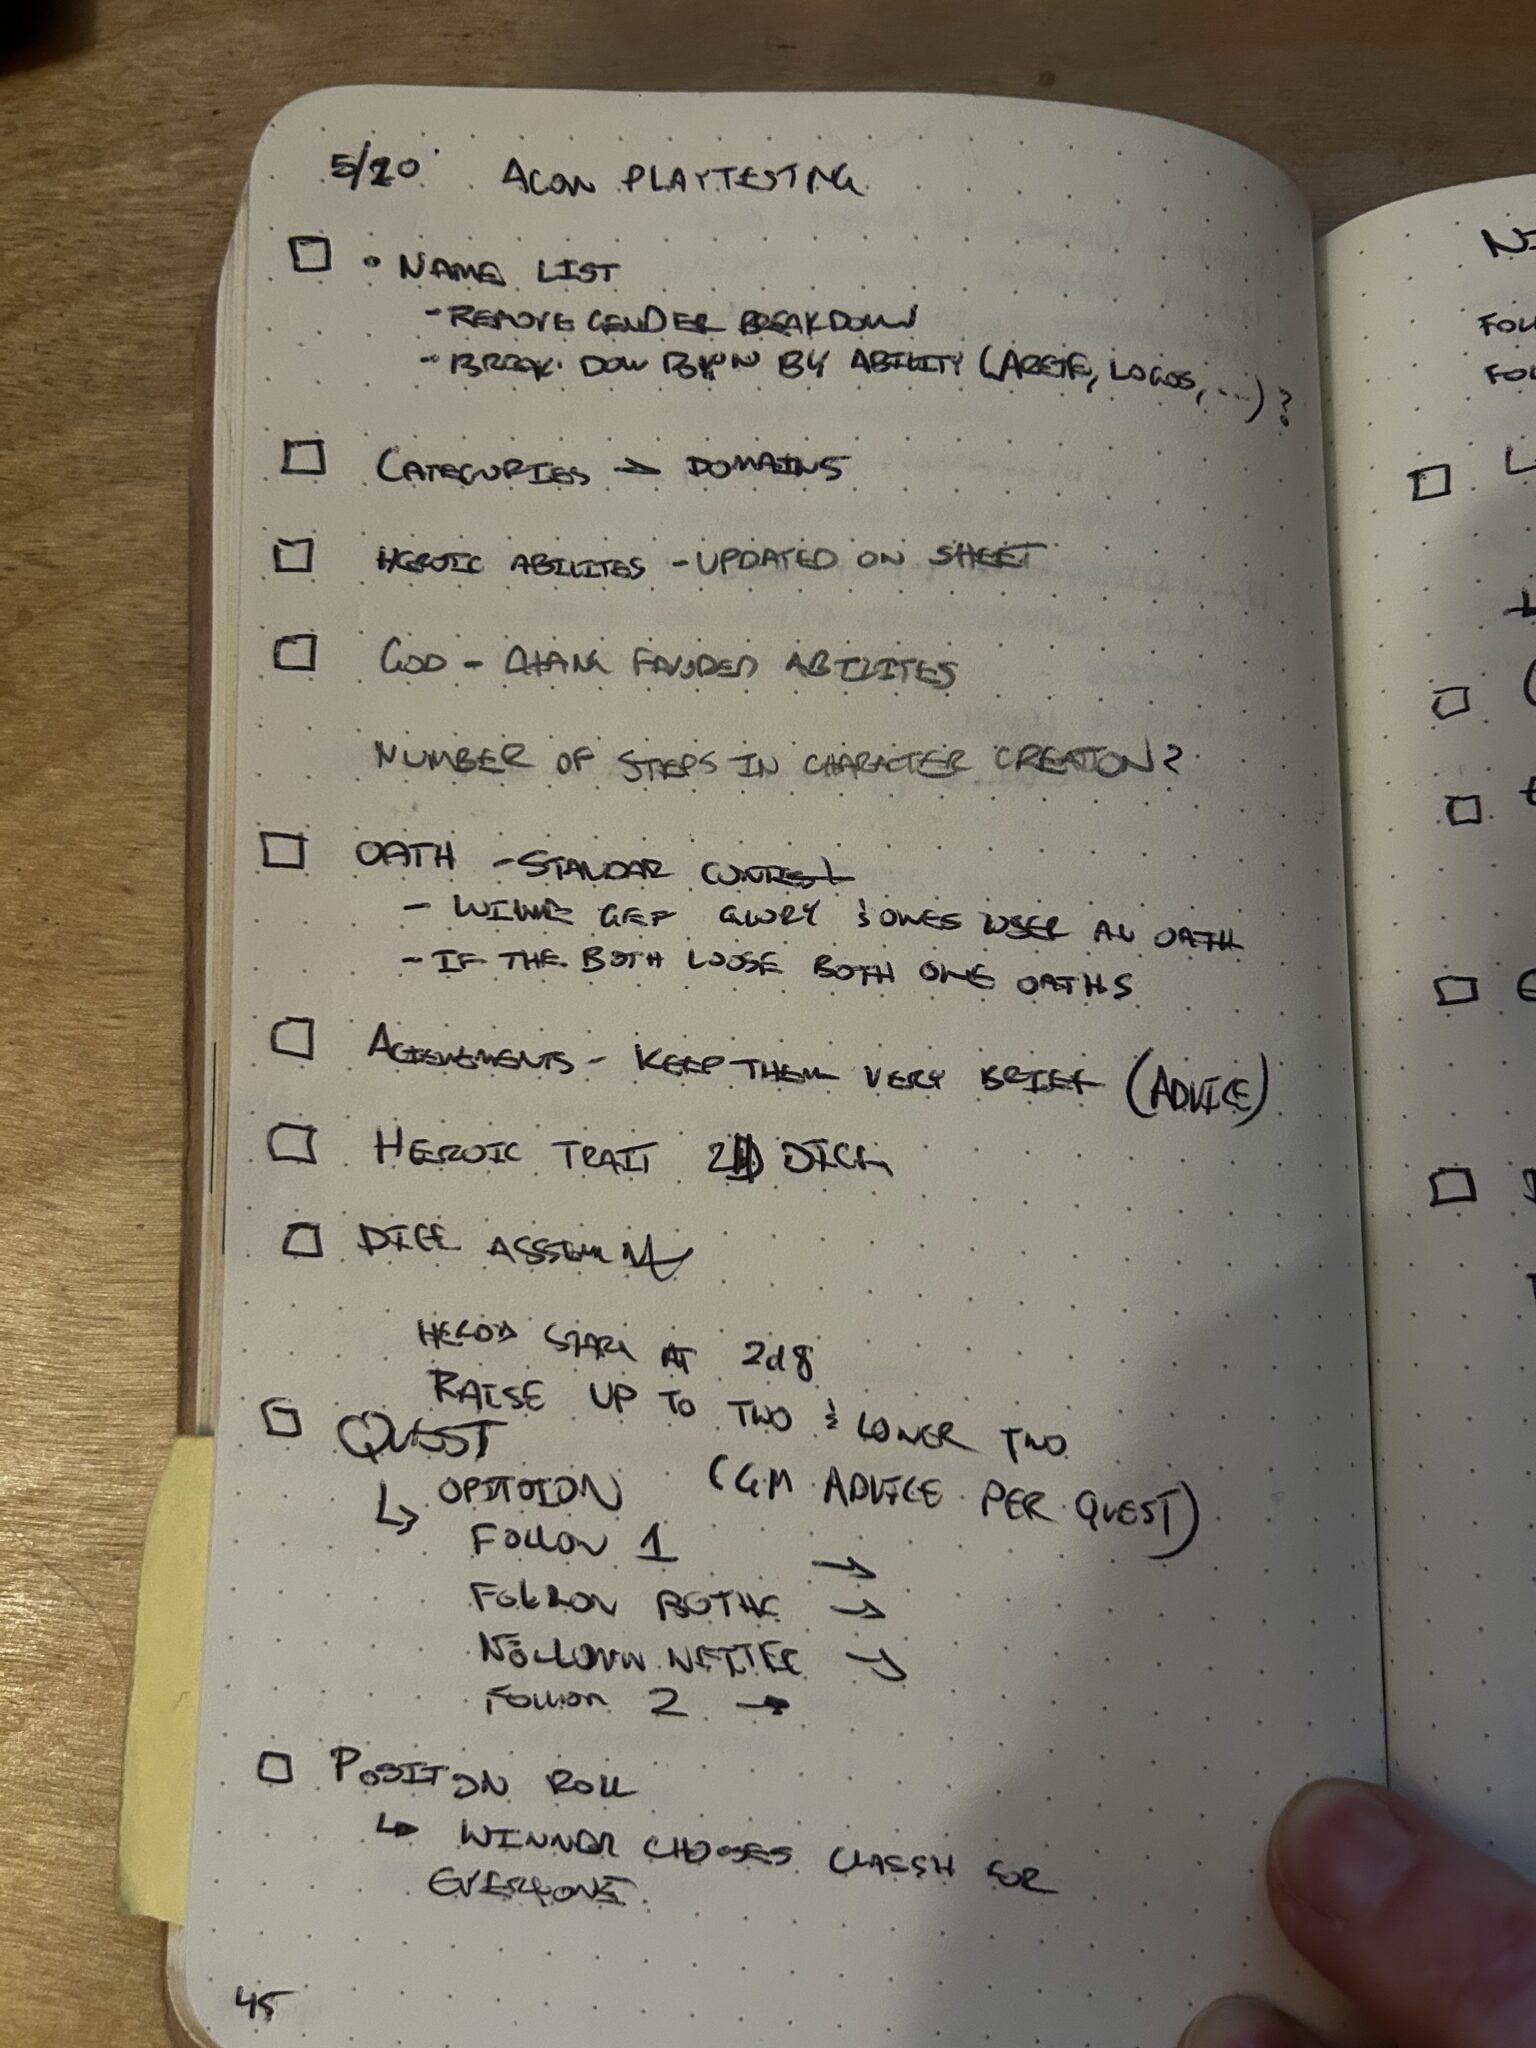 5/20 ACON PLAYTESTING
NAME LIST
- REMOVE GENDER BREAKDOWN
- BREAK DOW BY ABILITY (ARETE, LOGOS, ...)?
CATEGORIES → DOMAINS
HEROIC ABILITES - UPDATED ON SHEET
GOD - FAVORED ABILITES
NUMBER OF STEPS IN CHARACTER CREATION?
OATH - STANDAR CONTEST
- GET GLORY & OWES LOSER AN OATH
- IF THE BOTH LOOSE BOTH OWE OATHS
- KEEP THEM VERY BRIEF (ADVICE)
HEROIC TRAIT DICE
DICE
START AT 2d8
RAISE UP TO TWO & LOWER TWO
QUEST
(GM ADVICE PER QUEST)
FOLLOW 1 →
FOLLOW →
→
FOLLOW 2 →
POSITION ROLL
↳ WINNER CHOOSES FOR
EVERYONE
45